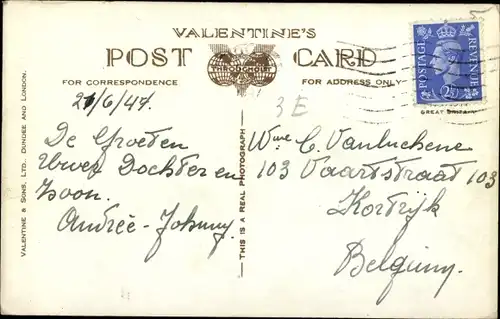 VALENTINE'S
POST CARD
FOR CORRESPONDENCE
FOR ADDRESS ONLY
POSTAGE
REVENUE
GREAT BRITAIN
5
3 E
VALENTINE & SONS, LTD. DUNDEE AND LONDON.
THIS IS A REAL PHOTOGRAPH
21/6/47.
De Groeten
Uwer Dochter en
Zoon.
Andrée-Johnny.
Wwe C. Vanluchene
103 Vaartstraat 103
Kortrijk
Belgium.